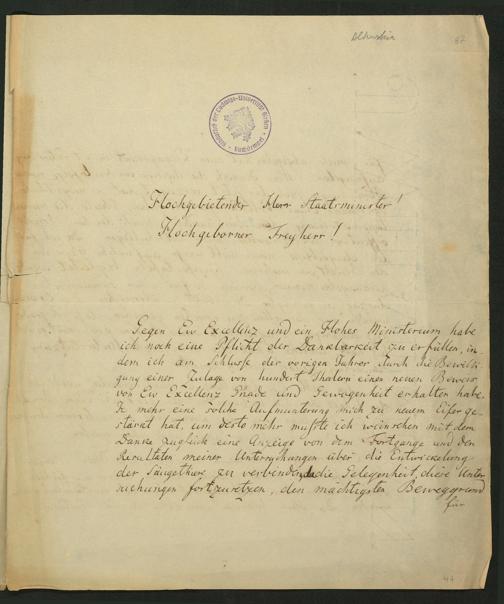 Altenstein 87
Bibliothek der Ludwigs-Universität Giessen
Hochgebietender Herr Staatsminister!
Hochgeborner Freyherr!
Gegen Ew Excellenz und ein Hohes Ministerium habe
ich noch eine Pflicht der Dankbarkeit zu erfüllen, in
dem ich am Schlusse der vorigen Jahres durch die Bewilli
gung einer Zulage von hundert Thalern einen neuen Beweis
von Ew Excellenz Gnade und Gewogenheit erhalten habe.
Je mehr eine solche Aufmunterung mich zu neuem Eifer ge-
stärkt hat, um desto mehr mußte ich wünschen mit dem
Danke zugleich eine Anzeige von dem Fortgange und den
Resultaten meiner Untersuchungen über die Entwickelung
der Säugethiere zu verbinden, da die Gelegenheit, diese Unter
suchungen fortzusetzen, den mächtigsten Beweggrund
für